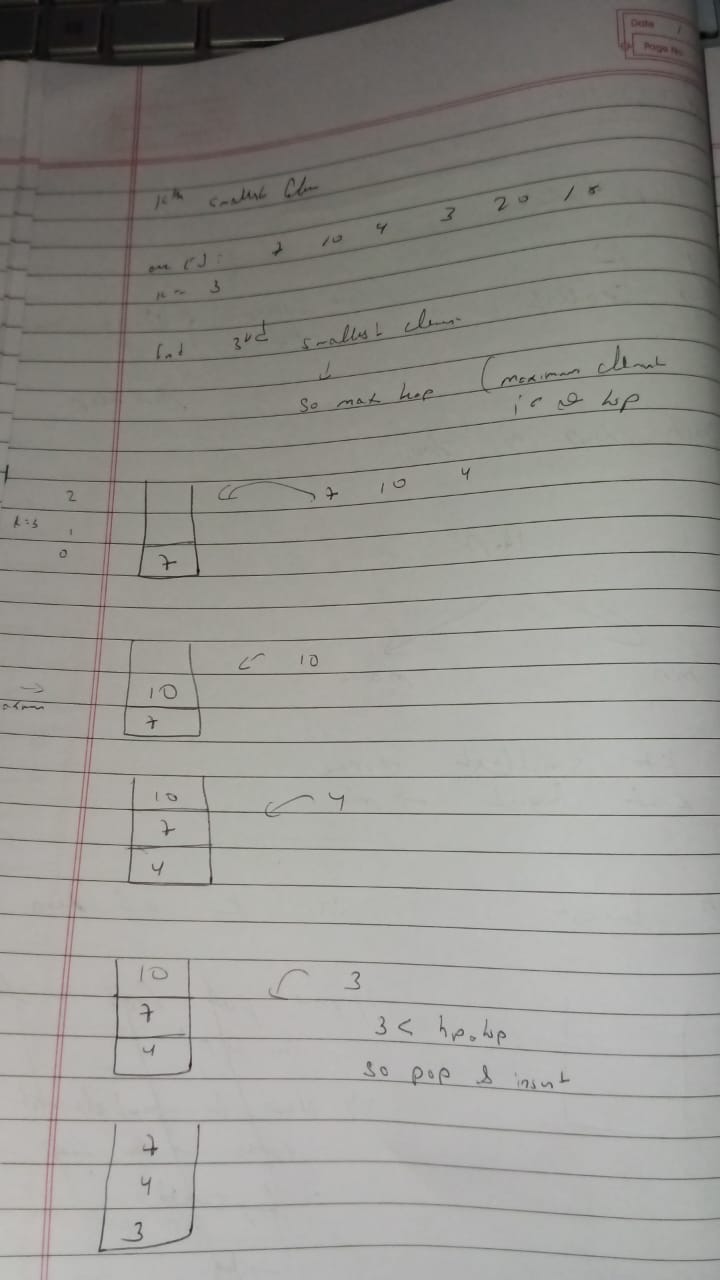 Date /
Page No.
kth smallest Ele
arr []: 7 10 4 3 20 15
k = 3
find 3rd smallest elem.
↓
so max heap (maximum element
is at top
2 7 10 4
k=3 1
0 7
10
10
7
10 4
7
4
10 3
7 3 < hp.top
4 so pop & insert
7
4
3